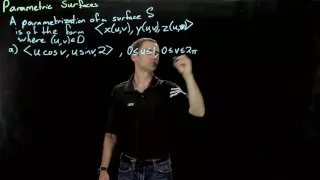 Parametric Surfaces
A parametrization of a surface S
is of the form <x(u,v), y(u,v), z(u,v)>
where (u,v)∈D
a) <u cos v, u sin v, 2> , 0≤u≤1, 0≤v≤2π